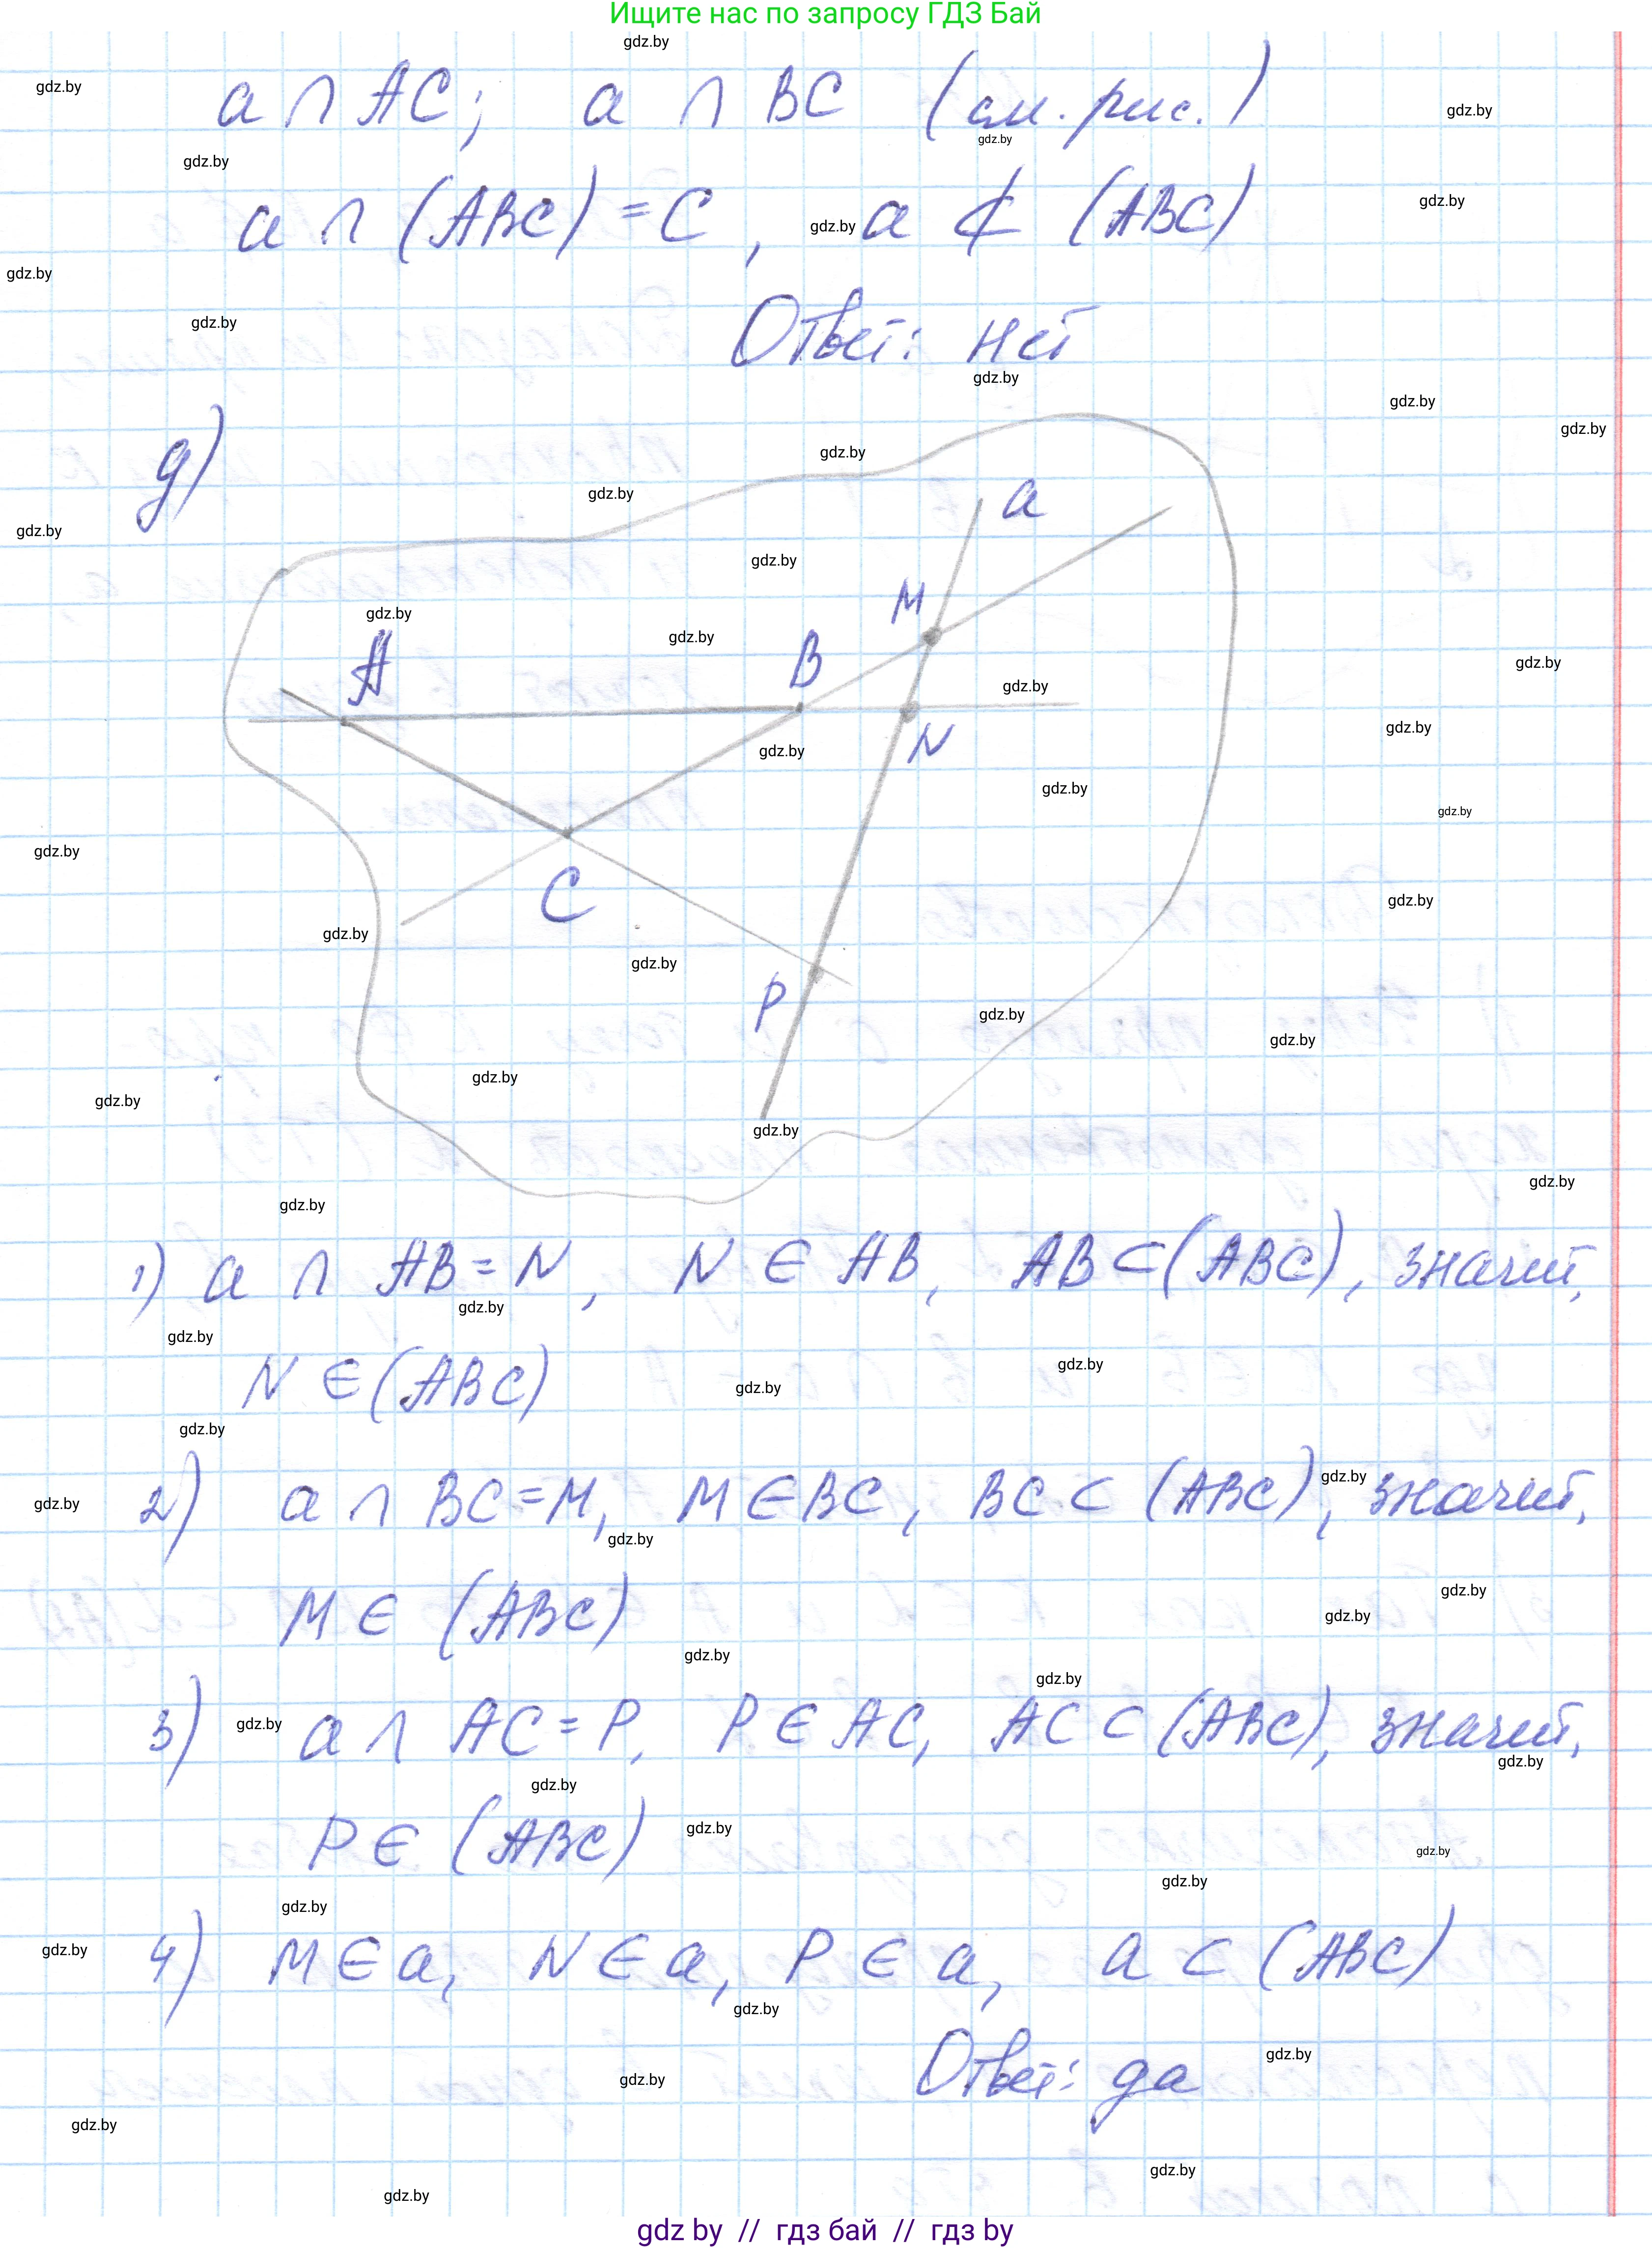 Ищите нас по запросу ГДЗ Бай
a ∩ AC; a ∩ BC (см. рис.)
a ∩ (ABC) = C, a ⊄ (ABC)
Ответ: нет
д)
a
M
A
B
N
C
P
1) a ∩ AB = N, N ∈ AB, AB ⊂ (ABC), значит,
N ∈ (ABC)
2) a ∩ BC = M, M ∈ BC, BC ⊂ (ABC), значит,
M ∈ (ABC)
3) a ∩ AC = P, P ∈ AC, AC ⊂ (ABC), значит,
P ∈ (ABC)
4) M ∈ a, N ∈ a, P ∈ a, a ⊂ (ABC)
Ответ: да
gdz by // гдз бай // гдз by